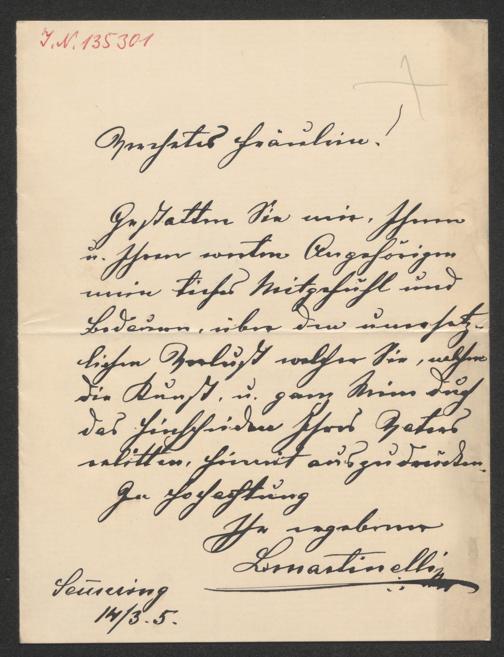 I.N. 135301
Verehrtes Fräulein!
Gestatten Sie mir, Ihnen
u. Ihren werten Angehörigen
mein tiefes Mitgefühl und
Bedauern, über den unersetz-
lichen Verlust welcher Sie, welchen
die Kunst, u. ganz Wien durch
das Hinscheiden Ihres Vaters
erlitten, hiemit auszudrücken.
In Hochachtung
Ihr ergebener
Martinelli
Semering
14/3.5.